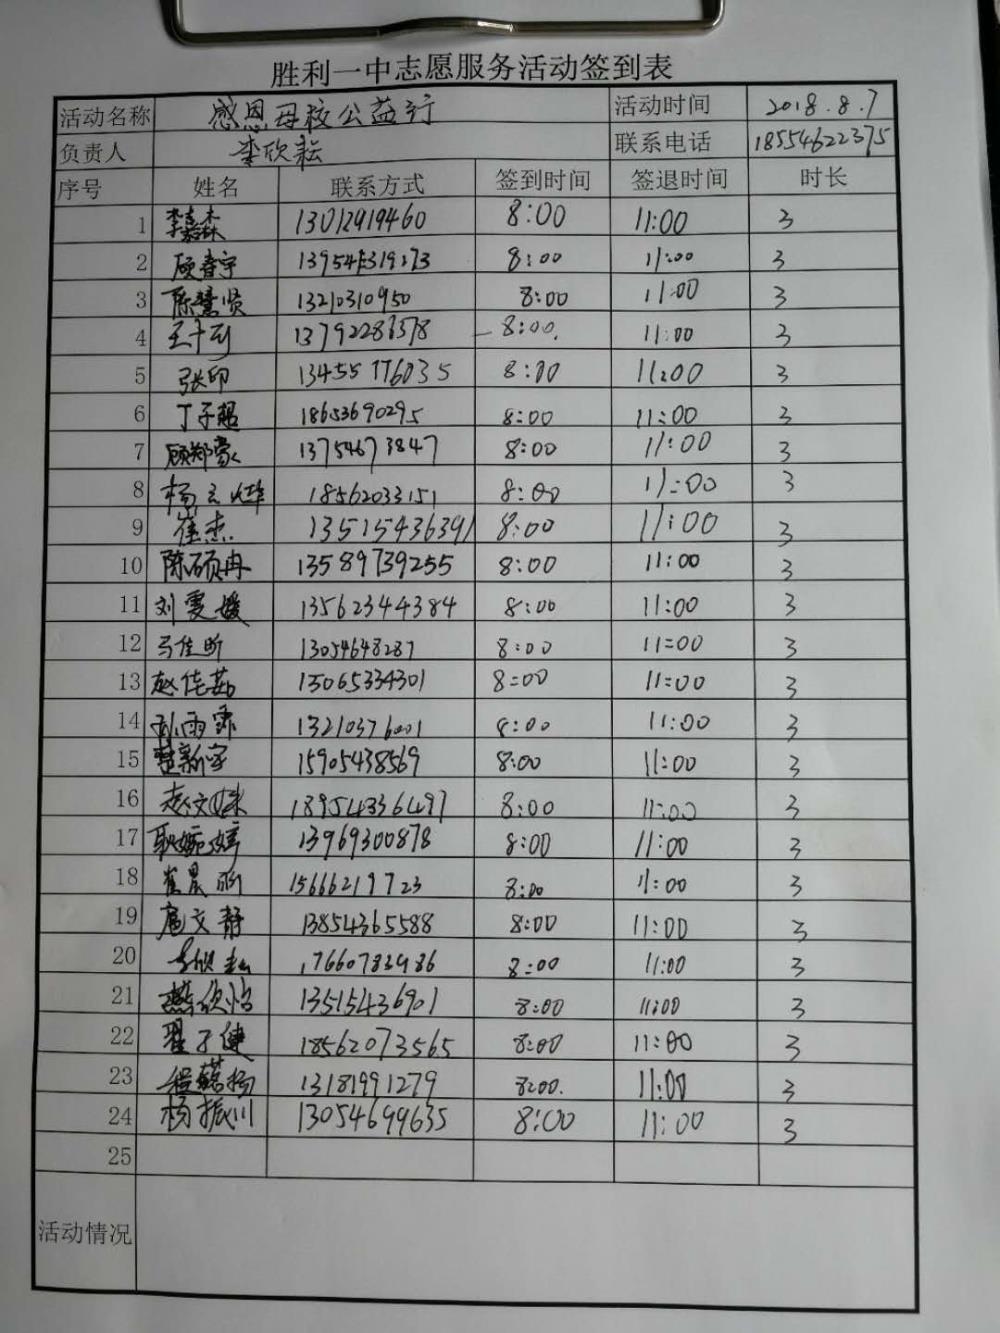 胜利一中志愿服务活动签到表
活动名称 感恩母校公益行 活动时间 2018.8.7
负责人 李欣耘 联系电话 18554622375
序号 姓名 联系方式 签到时间 签退时间 时长
1 李嘉森 13012919460 8:00 11:00 3
2 顾春宇 8:00 11:00 3
3 陈慧贤 13210310950 8:00 11:00 3
4 8:00. 11:00 3
5 张印 13455776035 8:00 11:00 3
6 丁子超 18653690295 8:00 11:00 3
7 顾郑豪 13754673847 8:00 11:00 3
8 18562033151 8:00 11:00 3
9 崔杰 13515436391 8:00 11:00 3
10 陈硕冉 13589739255 8:00 11:00 3
11 刘雯媛 13562344384 8:00 11:00 3
12 马佳昕 13054648287 8:00 11:00 3
13 赵佳茹 15065334301 8:00 11:00 3
14 孙雨霏 13210376001 8:00 11:00 3
15 楚新宇 15905438569 8:00 11:00 3
16 18954336497 8:00 11:00 3
17 耿婉婷 13969300878 8:00 11:00 3
18 崔晨 15666219723 8:00 11:00 3
19 扈文静 13854365588 8:00 11:00 3
20 李欣耘 8:00 11:00 3
21 燕欣怡 13515436901 8:00 11:00 3
22 翟子健 18562073565 8:00 11:00 3
23 13181991279 8:00. 11:00 3
24 杨振川 13054699635 8:00 11:00 3
25
活动情况